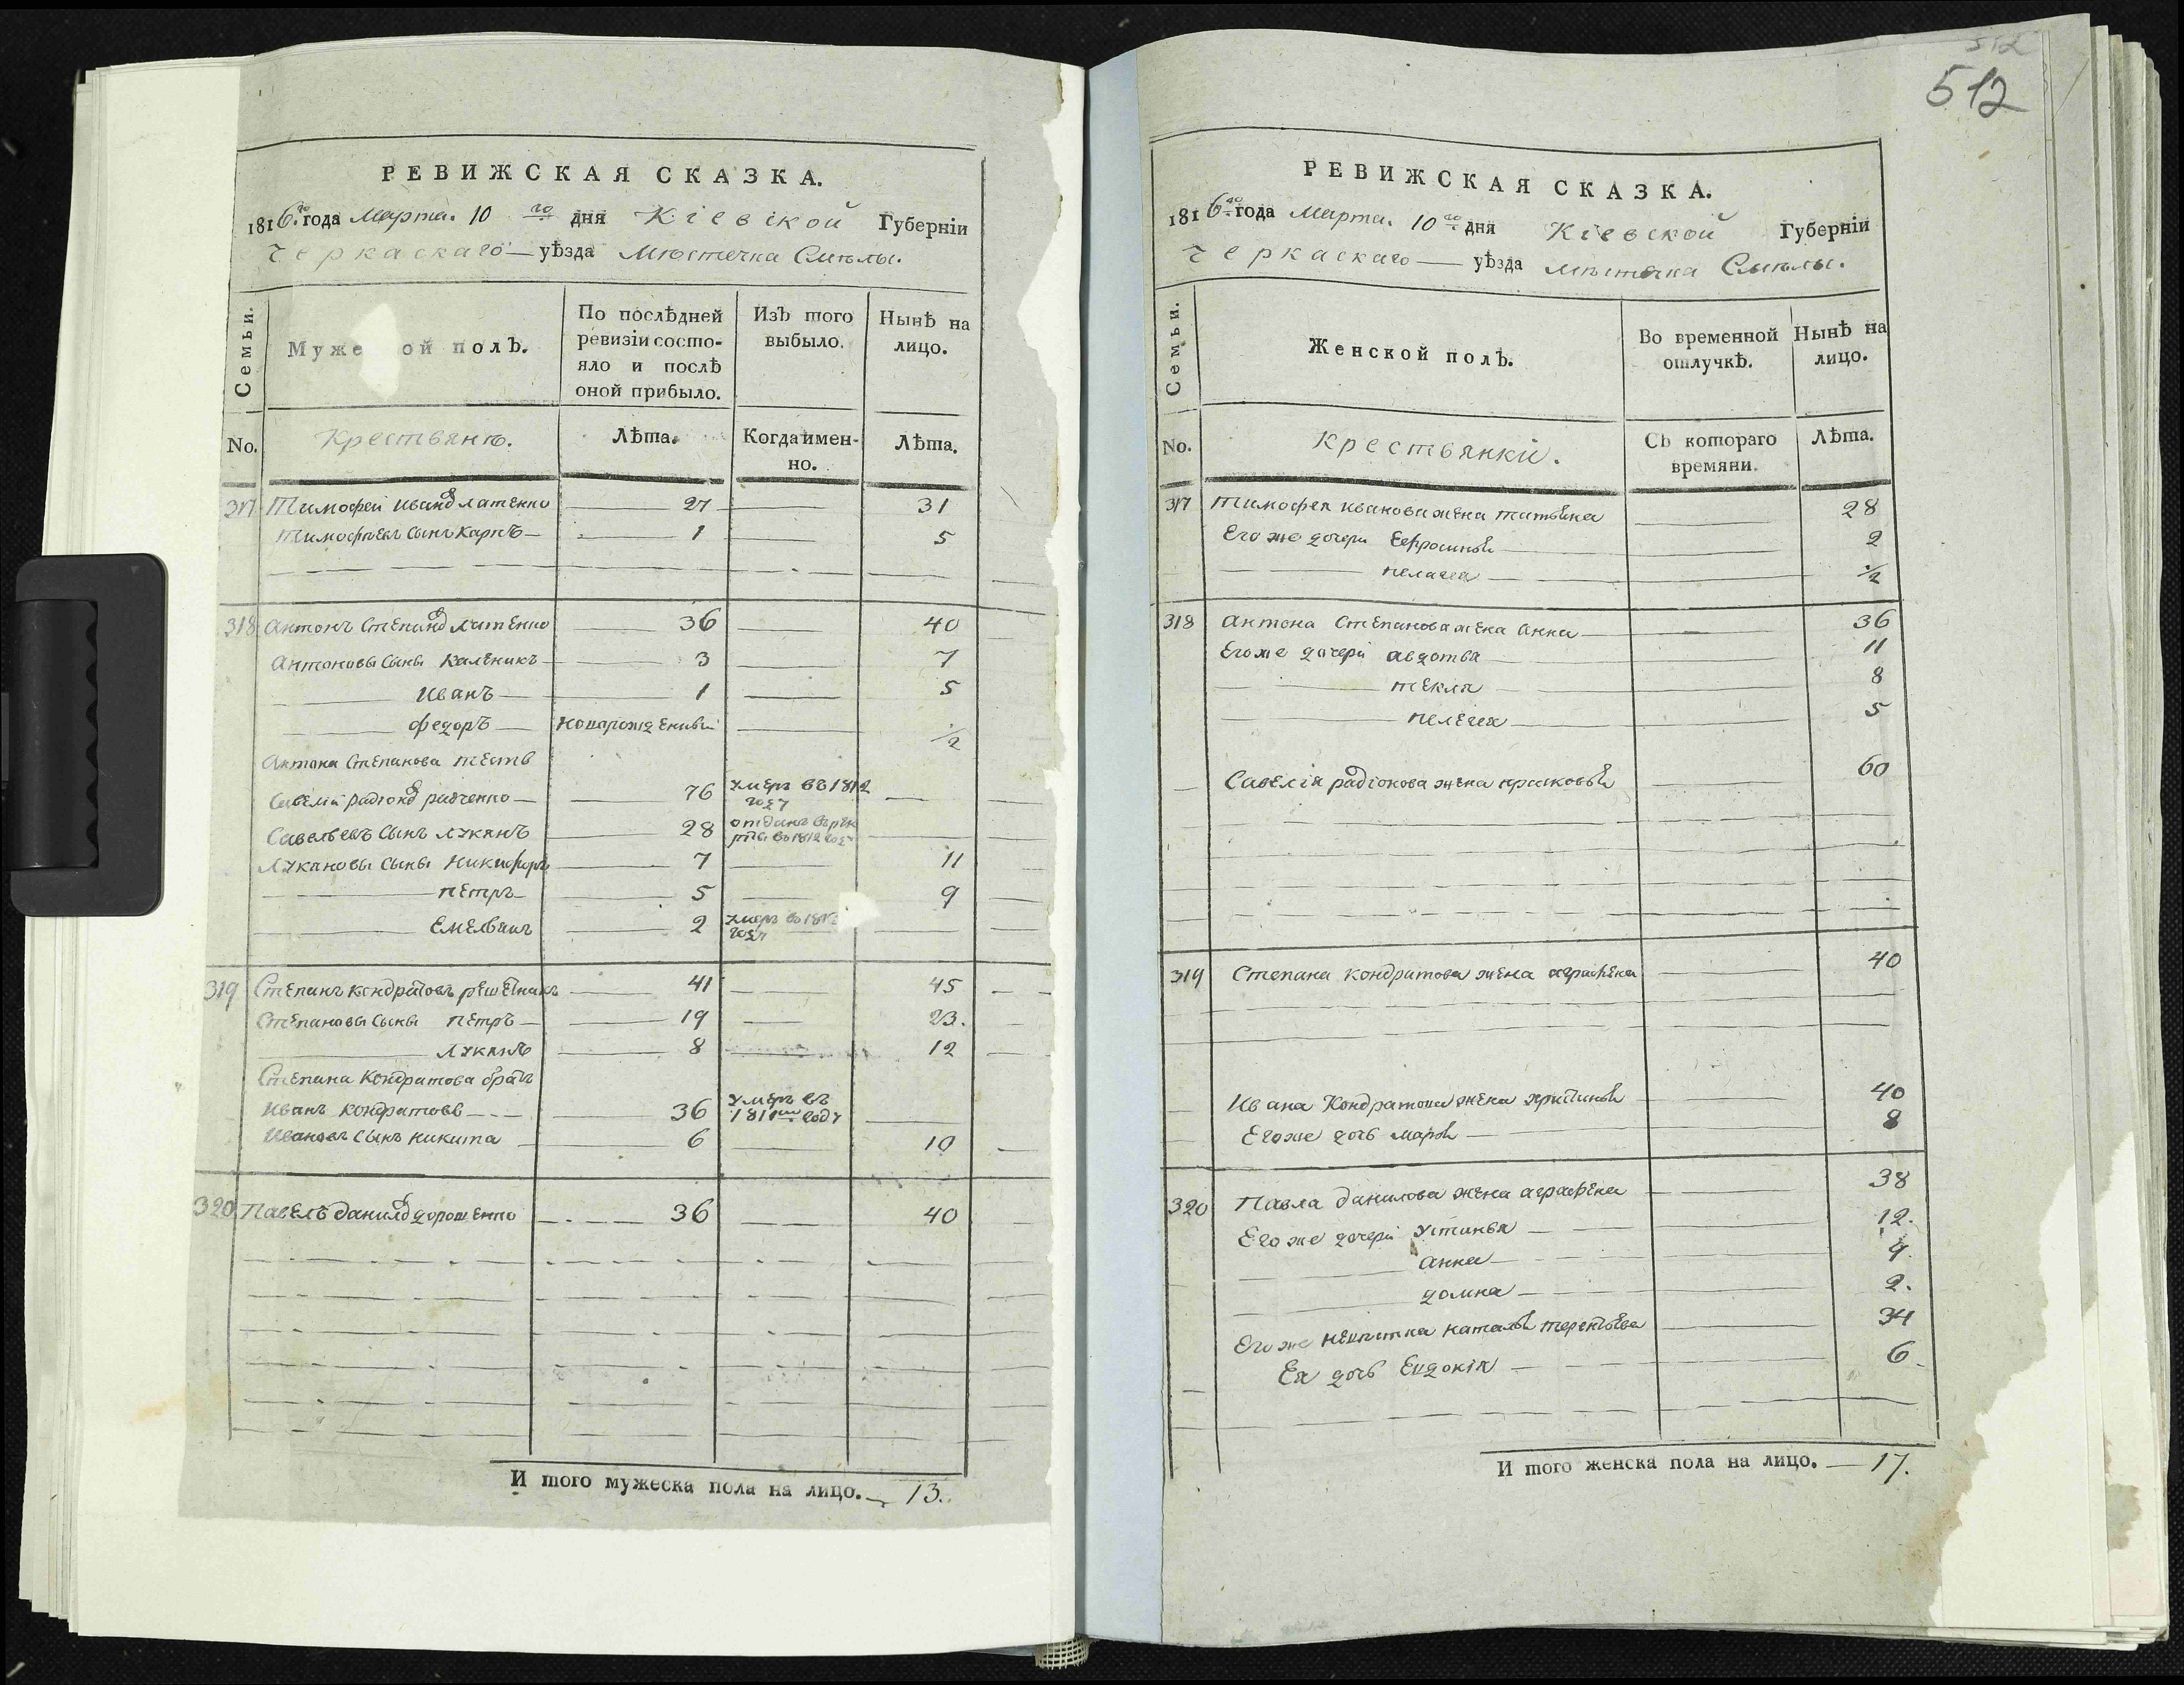 РЕВИЖСКАЯ СКАЗКА.
1816го года Марта. 10го дня Кіевской Губерніи
Черкаскаго уѣзда Мѣстечка Смѣлы.
Семьи.
Муже ой полЪ.
По послѣдней ревизіи состо-
яло и послѣ
оной прибыло.
ИзЪ того
выбыло.
НынѢ на
лицо.
No.
Крестьянъ.
Лѣта.
Когда имен-
но.
Лѣта.
317 Тимофей Ивановъ Латенко 27 31
Тимофѣевъ Сынъ Карпъ 1 5
318 Антонъ Степановъ Латенко 36 40
Антоновы Сыны Каленикъ 3 7
Иванъ 1 5
Федоръ новорожденный 1/2
Антона Степанова тесть
Савелій Радіоновъ 76 умеръ въ 1812 году
Савельевъ Сынъ Лукянъ 28 отданъ въ рекруты въ 1812 году
Лукяновы Сыны Никифоръ 7 11
Петръ 5 9
Емельянъ 2 умеръ въ году
319 Степанъ Кондратовъ решетникъ 41 45
Степановы Сыны Петръ 19 23.
Лукянъ 8 12
Степана Кондратова братъ
Иванъ Кондратовъ 36 умеръ въ 1811мъ году
Ивановъ Сынъ Никита 6 10
320 Павелъ Даниловъ Дорошенко 36 40
И того мужеска пола на лицо. 13.
512
512
РЕВИЖСКАЯ СКАЗКА.
1816го года Марта. 10го дня Кіевской Губерніи
Черкаскаго уѣзда мѣстечка Смѣлы.
Семьи.
Женской полЪ.
Во временной
отлучкѢ.
НынѢ на
лицо.
No.
Крестьянки.
СЬ котораго
времяни.
Лѣта.
317 Тимофея Иванова жена Татьяна 28
Его же дочери Ефросинья 2
Пелагея 1/2
318 Антона Степанова жена Анна 36
Его же дочери Авдотья 11
Текля 8
Пелагея 5
Савелія Радіонова жена Прасковья 60
319 Степана Кондратова жена Аграфена 40
Ивана Кондратова жена Христинья 40
Его же дочь Марья 8
320 Павла Данилова жена Аграфена 38
Его же дочери Устинья 12.
Анна 9.
Домна 2.
Его же невѣстка Наталья Терентьева 34
Ея дочь Евдокія 6
И того женска пола на лицо. 17.